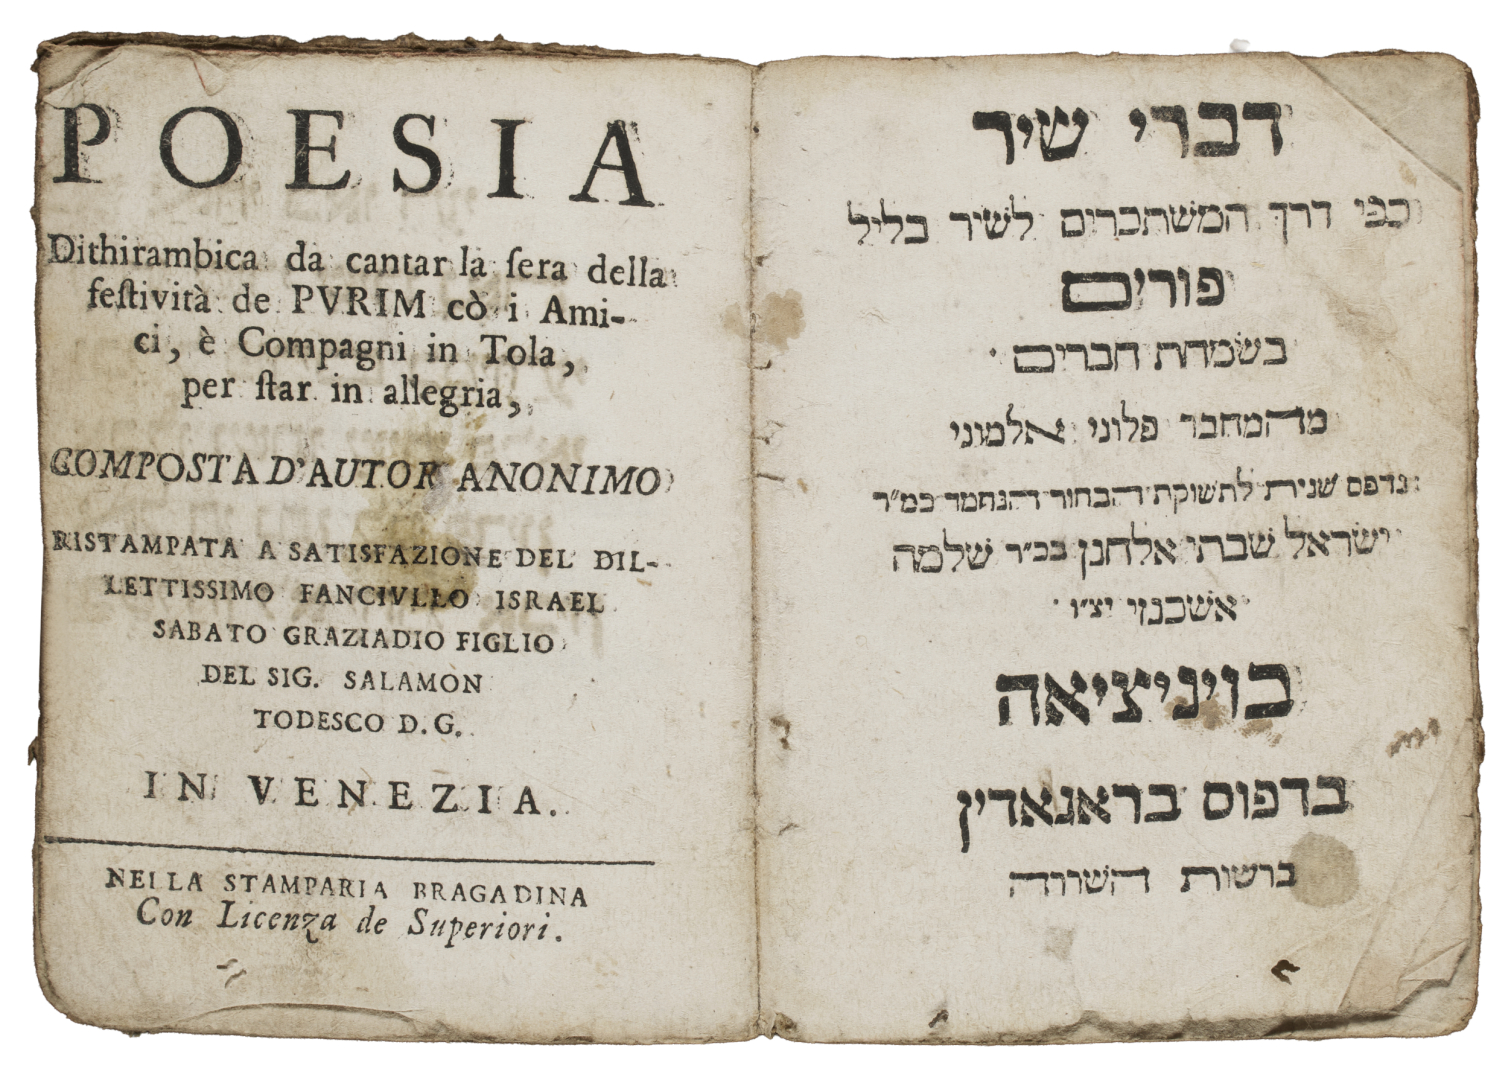 POESIA
Dithirambica da cantar la ſera della
feſtività de PVRIM cò i Ami-
ci, è Compagni in Tola,
per ſtar in allegria,
COMPOSTA D'AUTOR ANONIMO
RISTAMPATA A SATISFAZIONE DEL DIL-
LETTISSIMO FANCIVLLO ISRAEL
SABATO GRAZIADIO FIGLIO
DEL SIG. SALAMON
TODESCO D.G.
IN VENEZIA.
NELLA STAMPARIA BRAGADINA
Con Licenza de Superiori.
דברי שיר
כפי דרך המשתכרים לשיר בליל
פורים
בשמחת חברים
מהמחבר פלוני אלמוני
נדפס שנית לתשוקת הבחור הנחמד כמ״ר
ישראל שבתי אלחנן בכ״ר שלמה
אשכנזי יצ״ו
בויניציאה
בדפוס בראגאדין
ברשות השררה